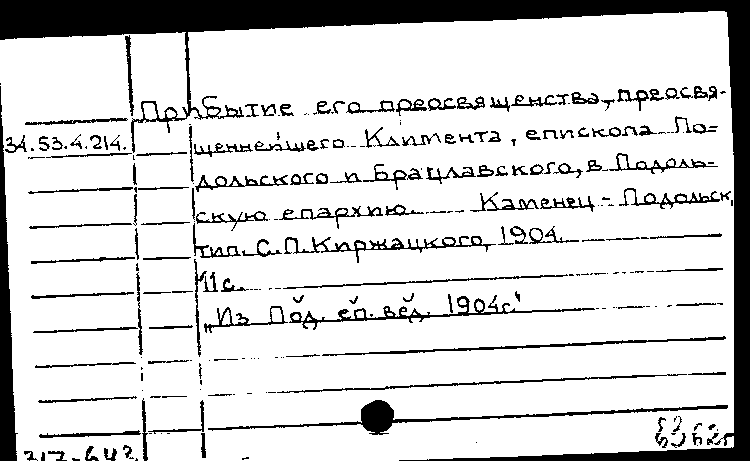 Прибытие его преосвященства, преосвя-
34.53.4.214. щеннейшего Климента, епископа По=
дольского и Брацлавского, в Подоль-
скую епархию. Каменец-Подольск,
тип. С.П.Киржацкого, 1904.
11 с.
„Из Под. еп. вед. 1904г."